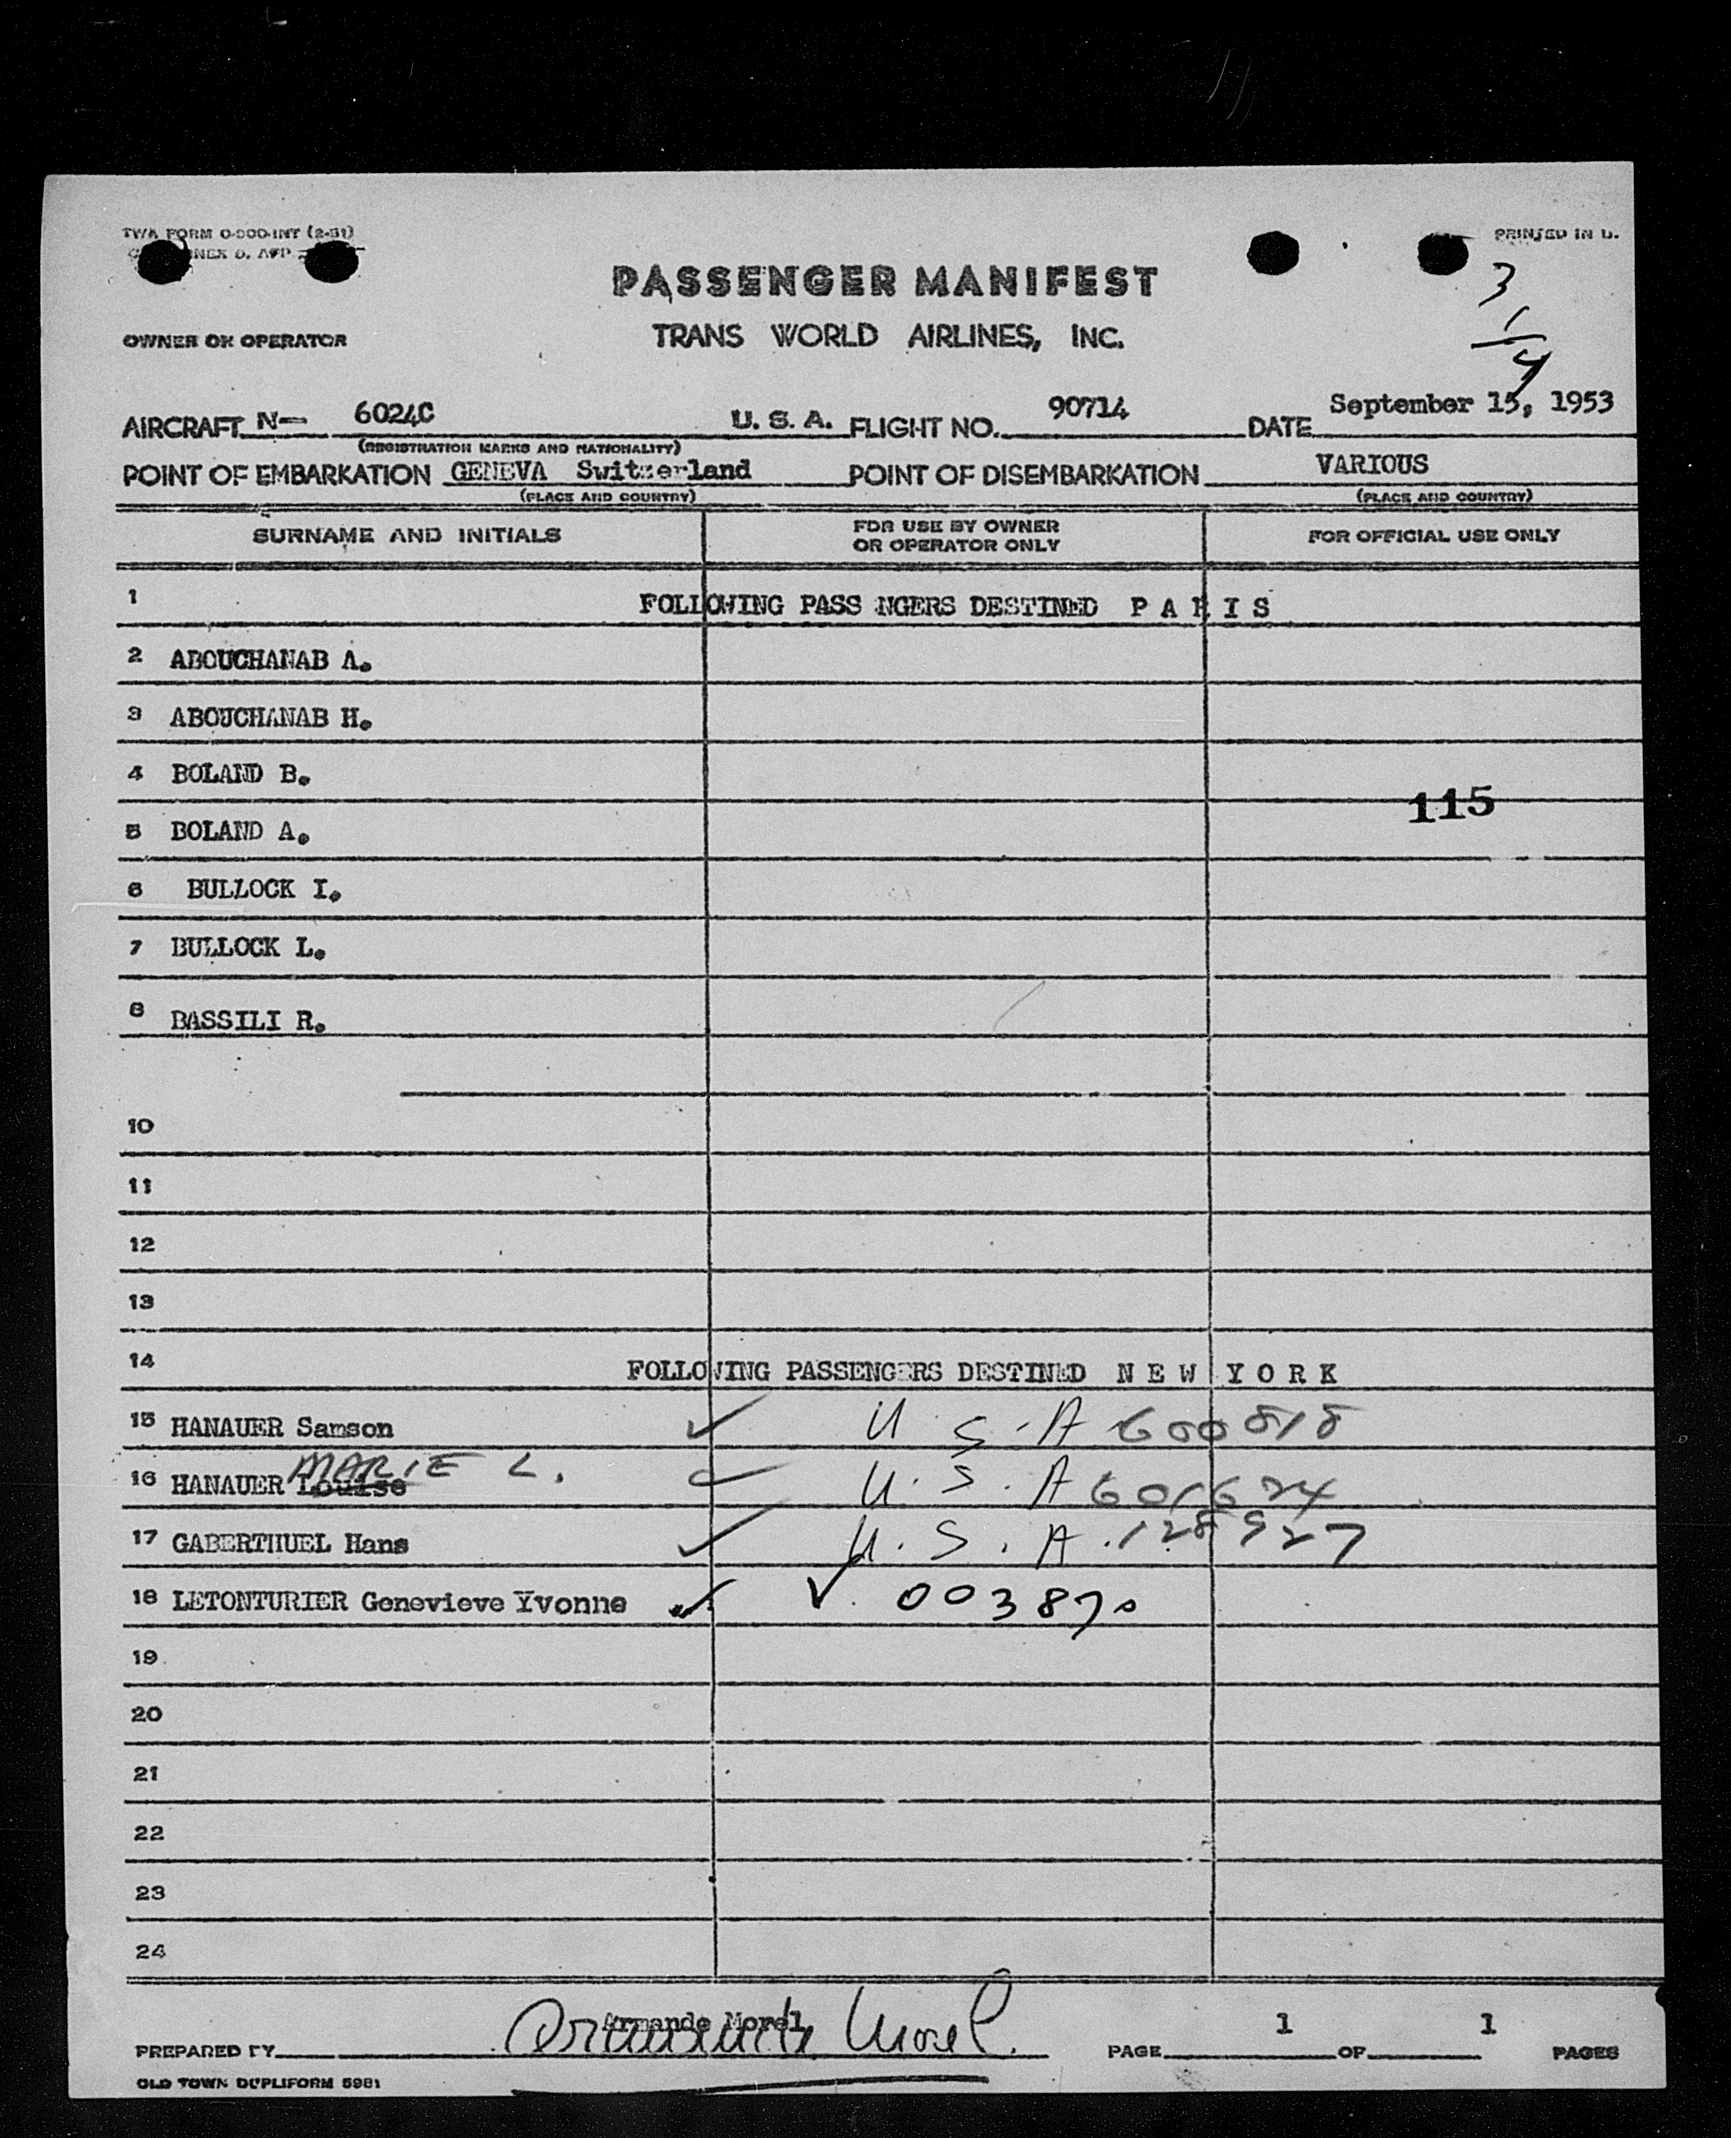 TWA FORM O-200-INT (2-51)
PRINTED IN U.
PASSENGER MANIFEST
3
1
4
OWNER OR OPERATOR
TRANS WORLD AIRLINES, INC.
AIRCRAFT N- 6024C U. S. A. FLIGHT NO. 90714 DATE September 15, 1953
(REGISTRATION MARKS AND NATIONALITY)
POINT OF EMBARKATION GENEVA Switzerland POINT OF DISEMBARKATION VARIOUS
(PLACE AND COUNTRY) (PLACE AND COUNTRY)
SURNAME AND INITIALS FOR USE BY OWNER OR OPERATOR ONLY FOR OFFICIAL USE ONLY
1 FOLLOWING PASS NGERS DESTINED P A R I S
2 ABOUCHANAB A.
3 ABOUCHANAB H.
4 BOLAND B.
115
5 BOLAND A.
6 BULLOCK I.
7 BULLOCK L.
8 BASSILI R.
10
11
12
13
14 FOLLOWING PASSENGERS DESTINED N E W Y O R K
15 HANAUER Samson ✓ U.S.A 600818
16 HANAUER Louise MARIE L. ✓ U.S.A 601624
17 GABERTHUEL Hans ✓ U.S.A. 128927
18 LETONTURIER Genevieve Yvonne ✓ ✓ 003870
19
20
21
22
23
24
Armande Morel
PREPARED BY Armande Morel PAGE 1 OF 1 PAGES
OLD TOWN DUPLIFORM 5981